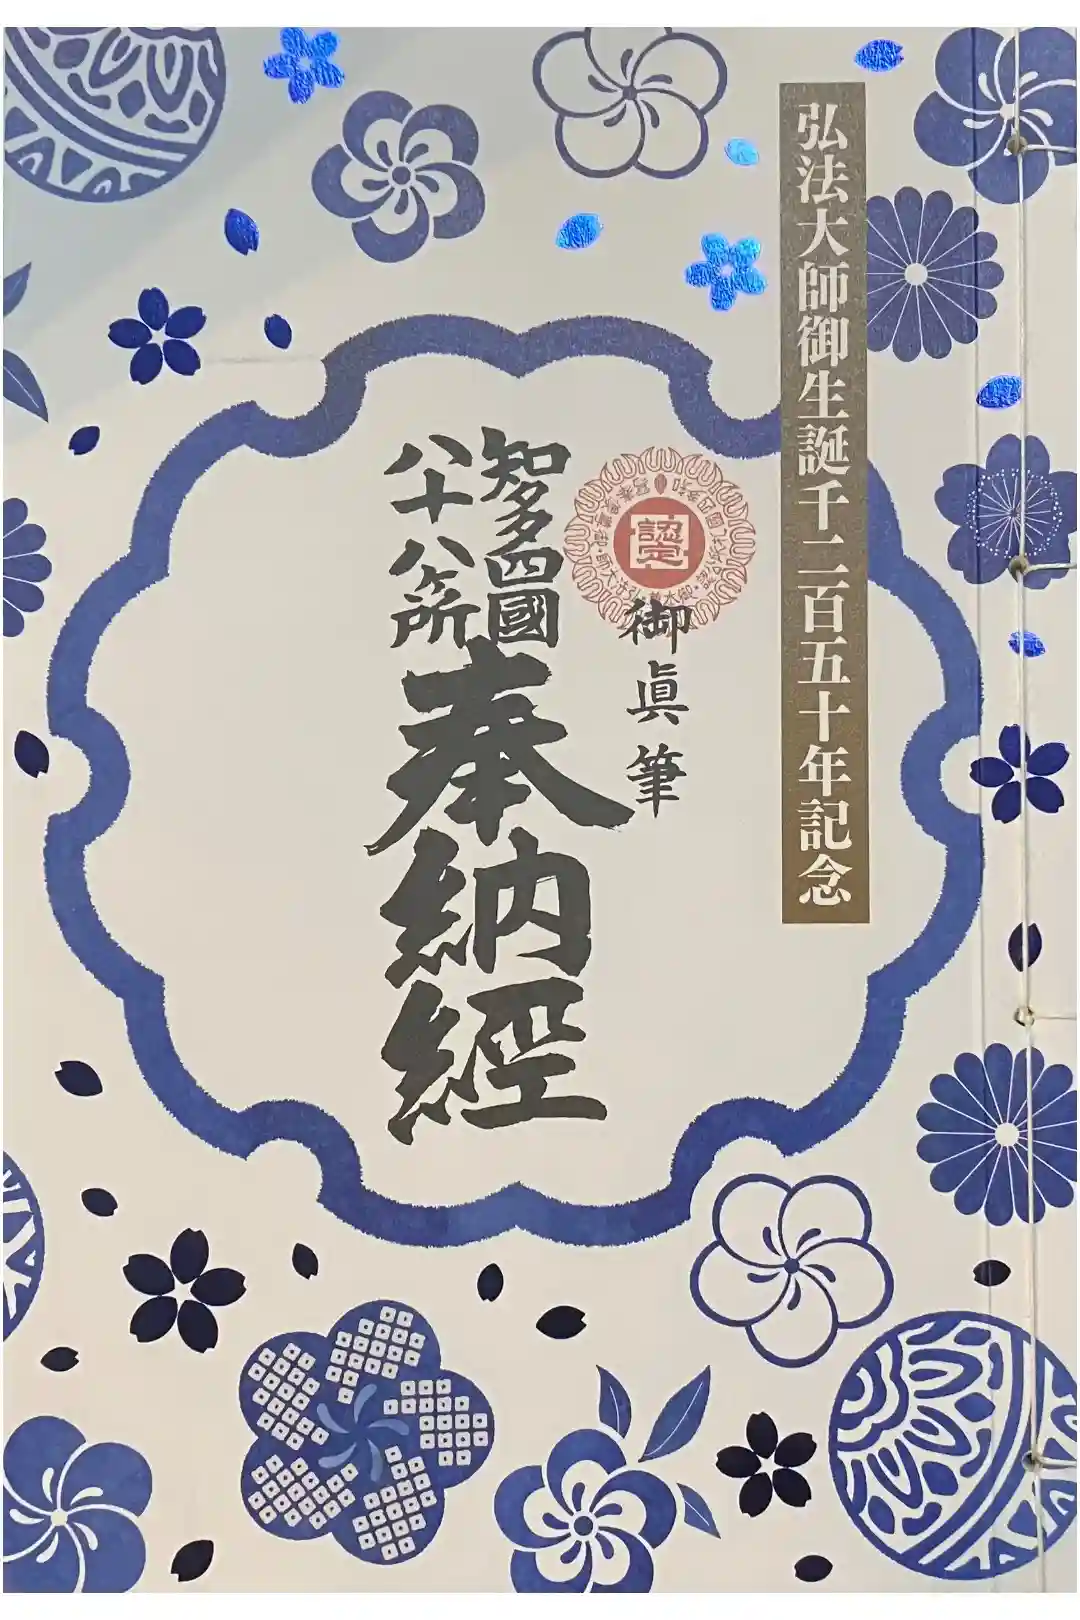 弘法大師御生誕千二百五十年記念
認定
御眞筆
智多四國
八十八ヶ所
奉納經